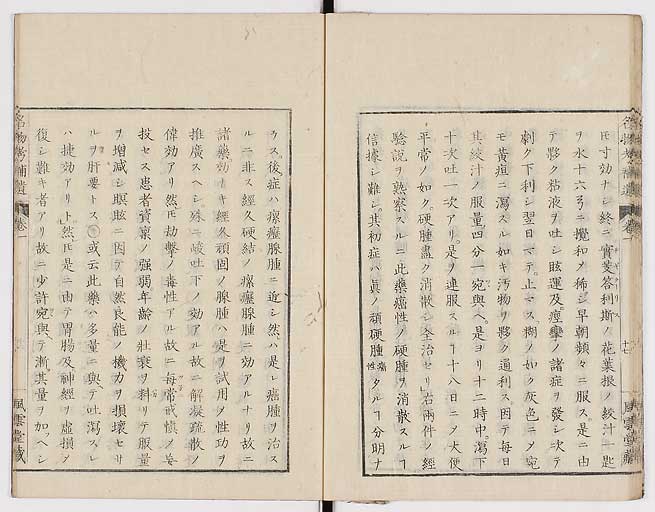 𪜈寸効ナシ終ニ實芰答利斯ノ花葉根ノ絞汁一匙
ヲ水十六弓ニ攪和メ稀シ早朝頻々ニ服ス是ニ由
テ夥ク粘液ヲ吐シ眩運及痙攣ノ諸症ヲ發シ次テ
劇ク下利シ翌日マテ止マス糊ノ如ク灰色ニメ宛
モ黄疸ニ瀉スル如キ汚物ヲ夥ク通利ス因テ毎日
其絞汁ノ服量四分一宛與ヘ是ヨリ十二時中瀉下
十次吐一次アリ是ヲ連服スルヿ十八日ニメ大便
平常ノ如ク硬腫盡ク消散シ全治セリ右兩件ノ經
驗説ヲ熟察スルニ此藥癌性ノ硬腫ヲ消散スルヿ
信據シ難シ其初症ハ眞ノ頑硬腫癌性タルヿ分明ナ
ラス後症ハ瘰癧腺腫ニ近シ然ハ是レ癌腫ヲ治ス
ルニ非ス經久硬結ノ瘰癧腺腫ニ効アルナリ故ニ
諸藥効ナキ經久頑固ノ腺腫ハ是ヲ試用メ性功ヲ
推廣スヘシ殊ニ峻吐下ノ効アル故ニ解凝疏散ノ
偉効アリ然𪜈劫撃ノ毒性アル故ニ毎常戒慎メ妄
投セス患者資稟ノ强弱年齡ノ壯衰ヲ料リテ服量
ヲ増減シ瞑眩ニ因テ自然良能ノ機力ヲ損壞セサ
ルヲ肝要トス○或云此藥ハ多量ニ與ヘテ吐瀉スレ
ハ捷効アリト然𪜈是ニ由テ胃腸及神經ヲ虚損メ
復シ難キ者アリ故ニ少許宛與ヘテ漸々其量ヲ加ヘシ
名物考補遺
卷一
十七
風雲堂藏